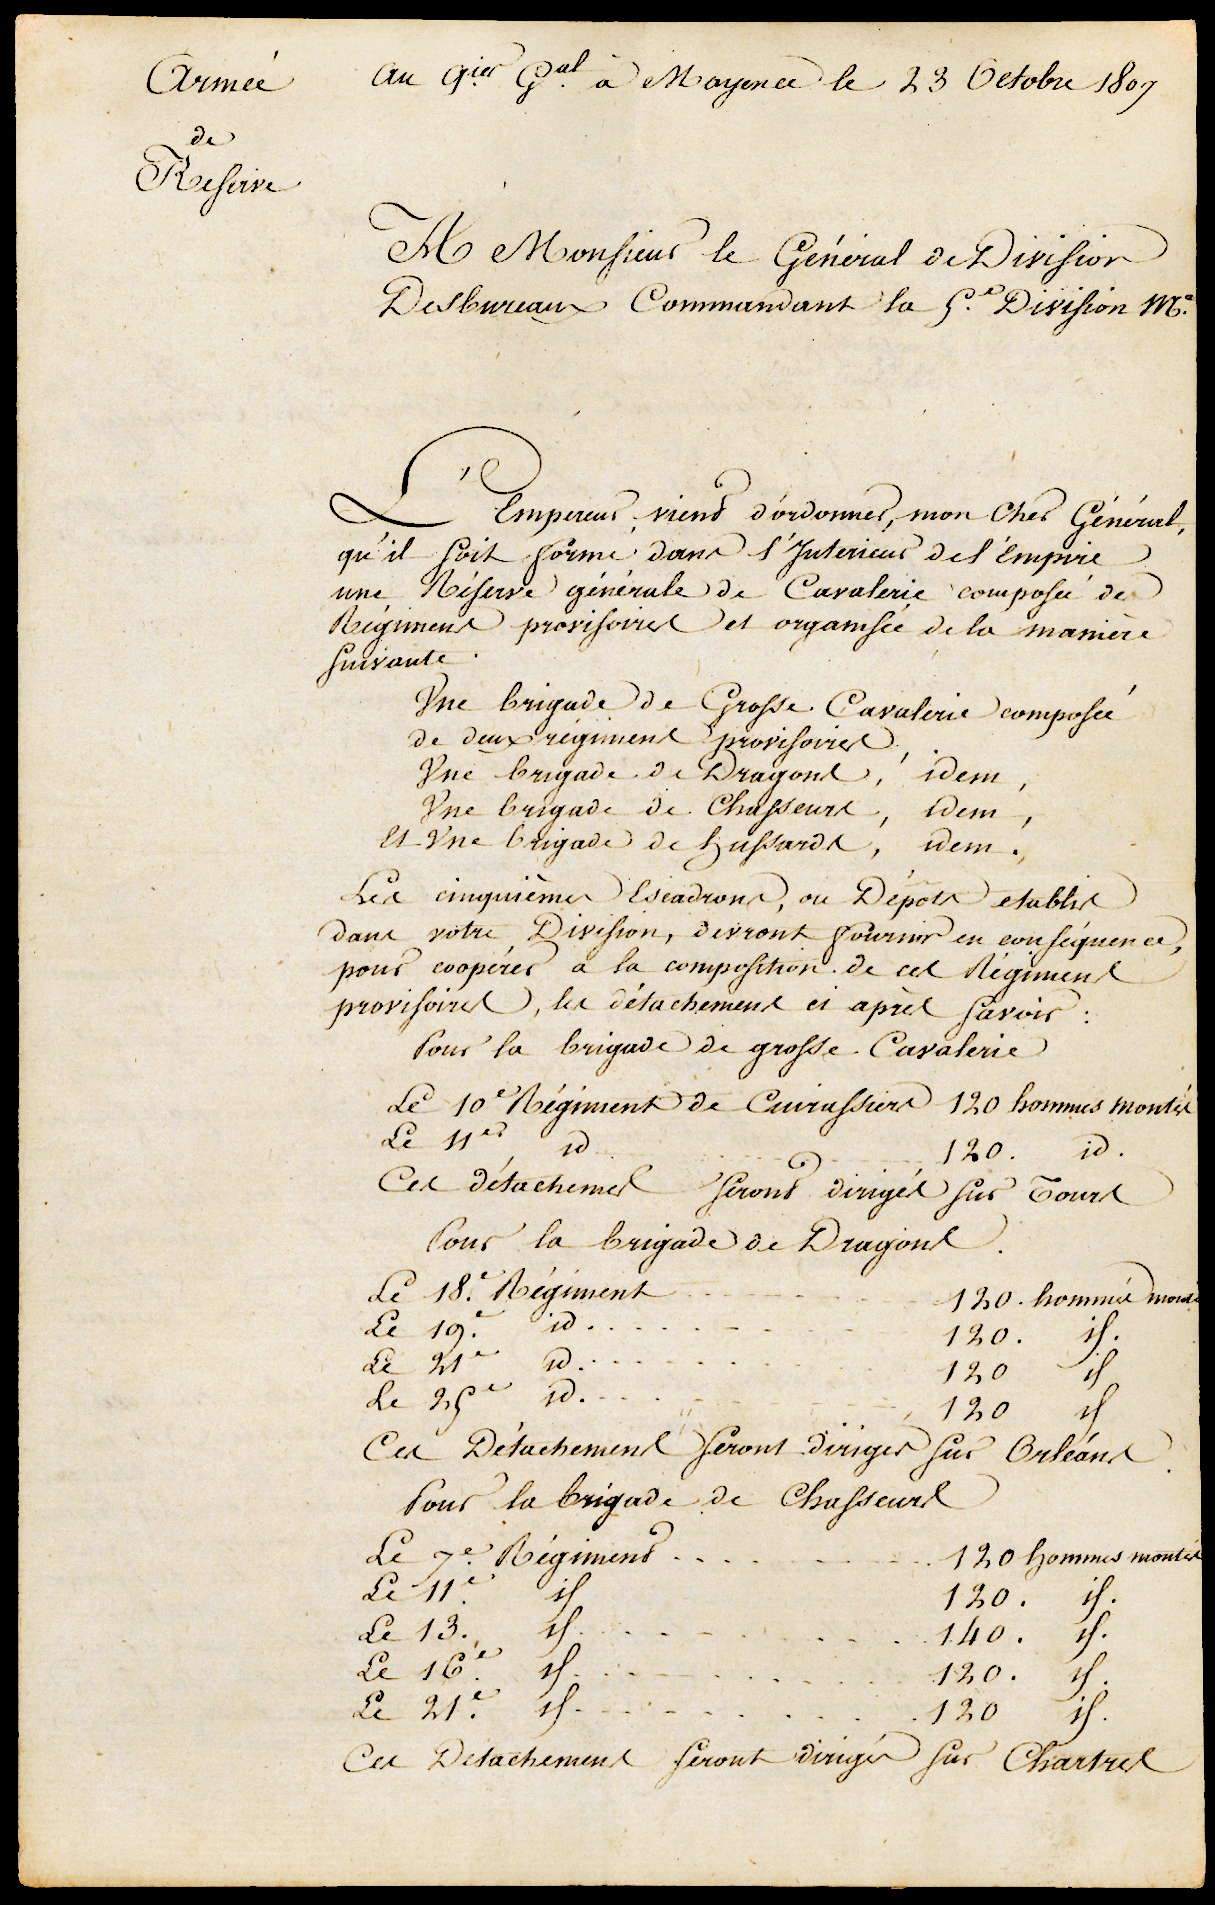 Armée
de
Reserve
au qier Gal. à Mayence le 23 Octobre 1807
A Monsieur le Général de Division
Desbureaux Commandant la 5.e Division Mre.
L'Empereur vient d'ordonner, mon Cher Général,
qu'il soit formé dans l'Interieur de l'Empire
une Réserve générale de Cavalerie composée de
Régiment provisoires et organisée de la manière
suivante.
Une brigade de Grosse Cavalerie composée
de deux régiment provisoires,
Une brigade de Dragons, idem,
Une brigade de Chasseurs, idem,
Et Une brigade de hussards, idem.
Les cinquièmes Escadrons, ou Dépots etablis
dans votre Division, devront fournir en conséquence,
pour coopérer a la composition de ces Régimens
provisoires, les détachemens ci après savoir:
Pour la brigade de grosse Cavalerie
Le 10e Régiment de Cuirassiers 120 hommes montés
Le 11er id 120. id.
Ces détachemes seront dirigés sur Tours
Pour la brigade de Dragons.
Le 18.e Régiment 120. hommes monté
Le 19.e id. 120. id.
Le 21e id. 120 id
Le 25e id. 120 id
Ces Détachemens seront dirigés sur Orléans
Pour la brigade de Chasseurs
Le 7.e Régiment 120 hommes montés
Le 11.e id 120. id.
Le 13. id. 140. id.
Le 16.e id. 120. id.
Le 21.e id. 120 id.
Ces Détachemens seront dirigés sur Chartres